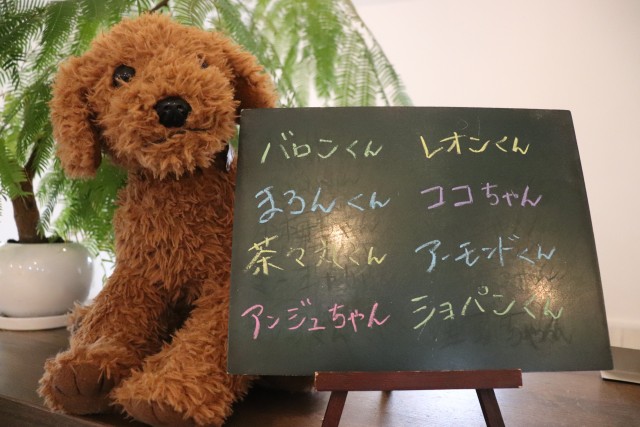 バロンくん
レオンくん
まろんくん
ココちゃん
茶々丸くん
アーモンドくん
アンジュちゃん
ショパンくん